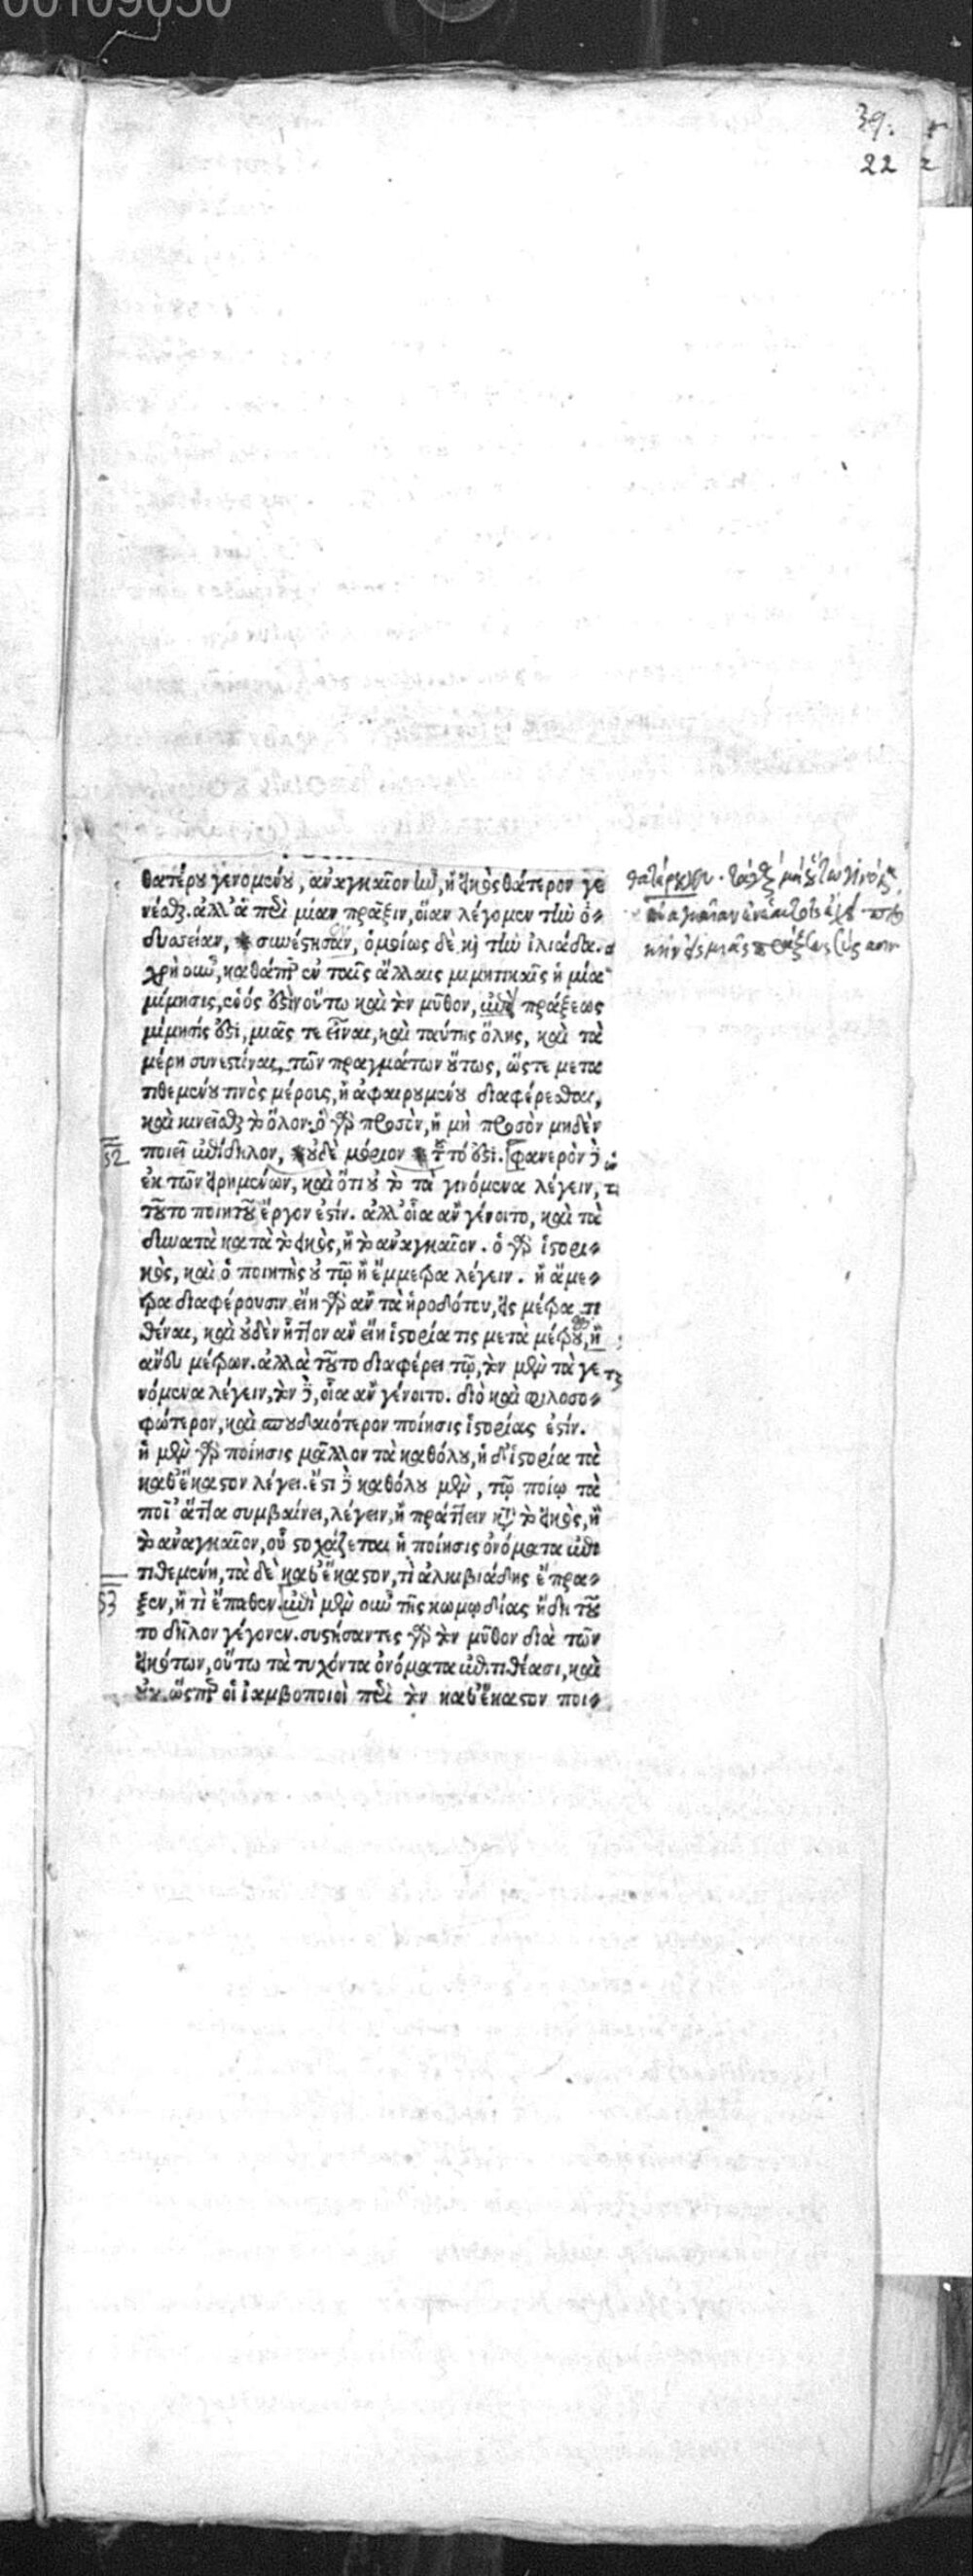 00109030
39.
22
θατέρου γενομένου, ἀναγκαῖον ἦν, ἢ εἰκὸς θάτερον γε
νέσθαι. ἀλλ' ἃ περὶ μίαν πρᾶξιν, οἵαν λέγομεν τὴν ὀ-
δυσσείαν, συνέστησαν, ὁμοίως δὲ καὶ τὴν ἰλιάδα.
χρὴ οὖν, καθάπερ ἐν ταῖς ἄλλαις μιμητικαῖς ἡ μία
μίμησις, ἑνός ἐστιν οὕτω καὶ τὸν μῦθον, ἐπεὶ πράξεως
μίμησίς ἐστι, μιᾶς τε εἶναι, καὶ ταύτης ὅλης, καὶ τὰ
μέρη συνεστάναι, τῶν πραγμάτων οὕτως, ὥστε μετα
τιθεμένου τινὸς μέρους, ἢ ἀφαιρουμένου διαφέρεσθαι,
καὶ κινεῖσθαι τὸ ὅλον. ὃ γὰρ προσὸν, ἢ μὴ προσὸν μηδὲν
52 ποιεῖ ἐπίδηλον, οὐδὲ μόριον τοῦτό ἐστι. φανερὸν δὲ
ἐκ τῶν εἰρημένων, καὶ ὅτι οὐ τὸ τὰ γινόμενα λέγειν,
τοῦτο ποιητοῦ ἔργον ἐστίν. ἀλλ' οἷα ἂν γένοιτο, καὶ τὰ
δυνατὰ κατὰ τὸ εἰκὸς, ἢ τὸ ἀναγκαῖον. ὁ γὰρ ἱστορι-
κὸς, καὶ ὁ ποιητὴς οὐ τῷ ἢ ἔμμετρα λέγειν. ἢ ἄμε-
τρα διαφέρουσιν. εἴη γὰρ ἂν τὰ ἡροδότου, εἰς μέτρα τι
θέναι, καὶ οὐδὲν ἧττον ἂν εἴη ἱστορία τις μετὰ μέτρου, ἢ
ἄνευ μέτρων. ἀλλὰ τοῦτο διαφέρει τῷ, τὸν μὲν τὰ γε
νόμενα λέγειν, τὸν δὲ, οἷα ἂν γένοιτο. διὸ καὶ φιλοσο-
φώτερον, καὶ σπουδαιότερον ποίησις ἱστορίας ἐστίν.
ἡ μὲν γὰρ ποίησις μᾶλλον τὰ καθόλου, ἡ δ' ἱστορία τὰ
καθ' ἕκαστον λέγει. ἔστι δὲ καθόλου μὲν, τῷ ποίῳ τὰ
ποῖ' ἄττα συμβαίνει, λέγειν, ἢ πράττειν κατὰ τὸ εἰκὸς, ἢ
τὸ ἀναγκαῖον, οὗ στοχάζεται ἡ ποίησις ὀνόματα ἐπι
τιθεμένη, τὰ δὲ καθ' ἕκαστον, τὶ ἀλκιβιάδης ἔπρα-
53 ξεν, ἢ τὶ ἔπαθεν. ἐπὶ μὲν οὖν τῆς κωμῳδίας ἤδη τοῦ
το δῆλον γέγονεν. συστήσαντες γὰρ τὸν μῦθον διὰ τῶν
εἰκότων, οὕτω τὰ τυχόντα ὀνόματα ἐπιτιθέασι, καὶ
οὐκ ὥσπερ οἱ ἰαμβοποιοὶ περὶ τὸν καθ' ἕκαστον ποι-